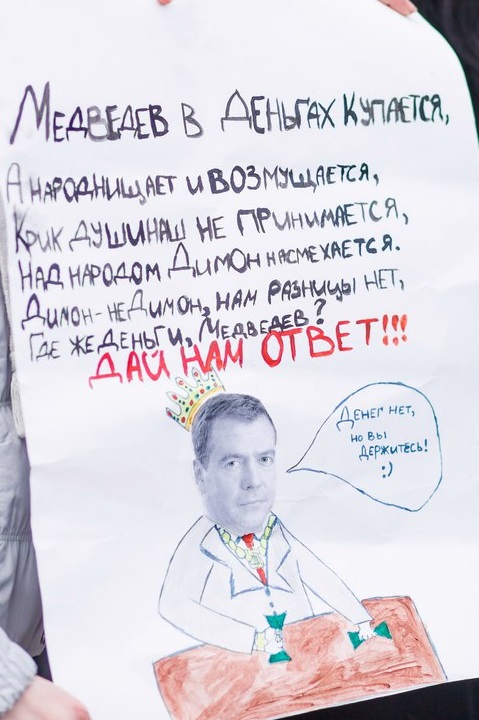 Медведев в Деньгах Купается,
А народ нищает и возмущается,
Крик души наш не принимается,
Над народом Димон насмехается.
Димон - не Димон, нам разницы нет,
Где же деньги, Медведев?
ДАЙ НАМ ОТВЕТ!!!
Денег нет,
но вы
держитесь!
:)